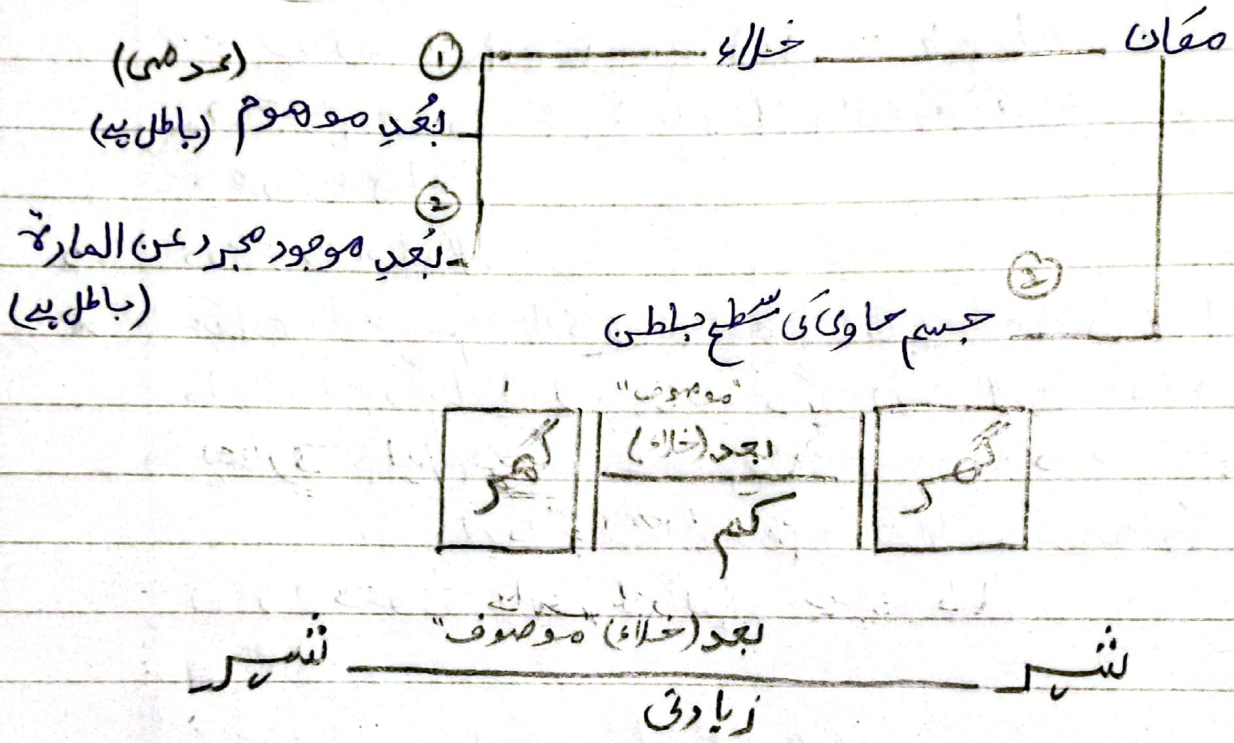 مکان خلاء ①
(عدمی)
بُعدِ موھوم (باطل ہے)
②
بُعدِ موجود مجرد عن المادۃ
(باطل ہے)
②
جسم حاوی کی سطح باطن
"موصوف"
گھر بعد (خلاء) گھر
کم
بعد (خلاء) "موصوف"
شہر شہر
زیادتی